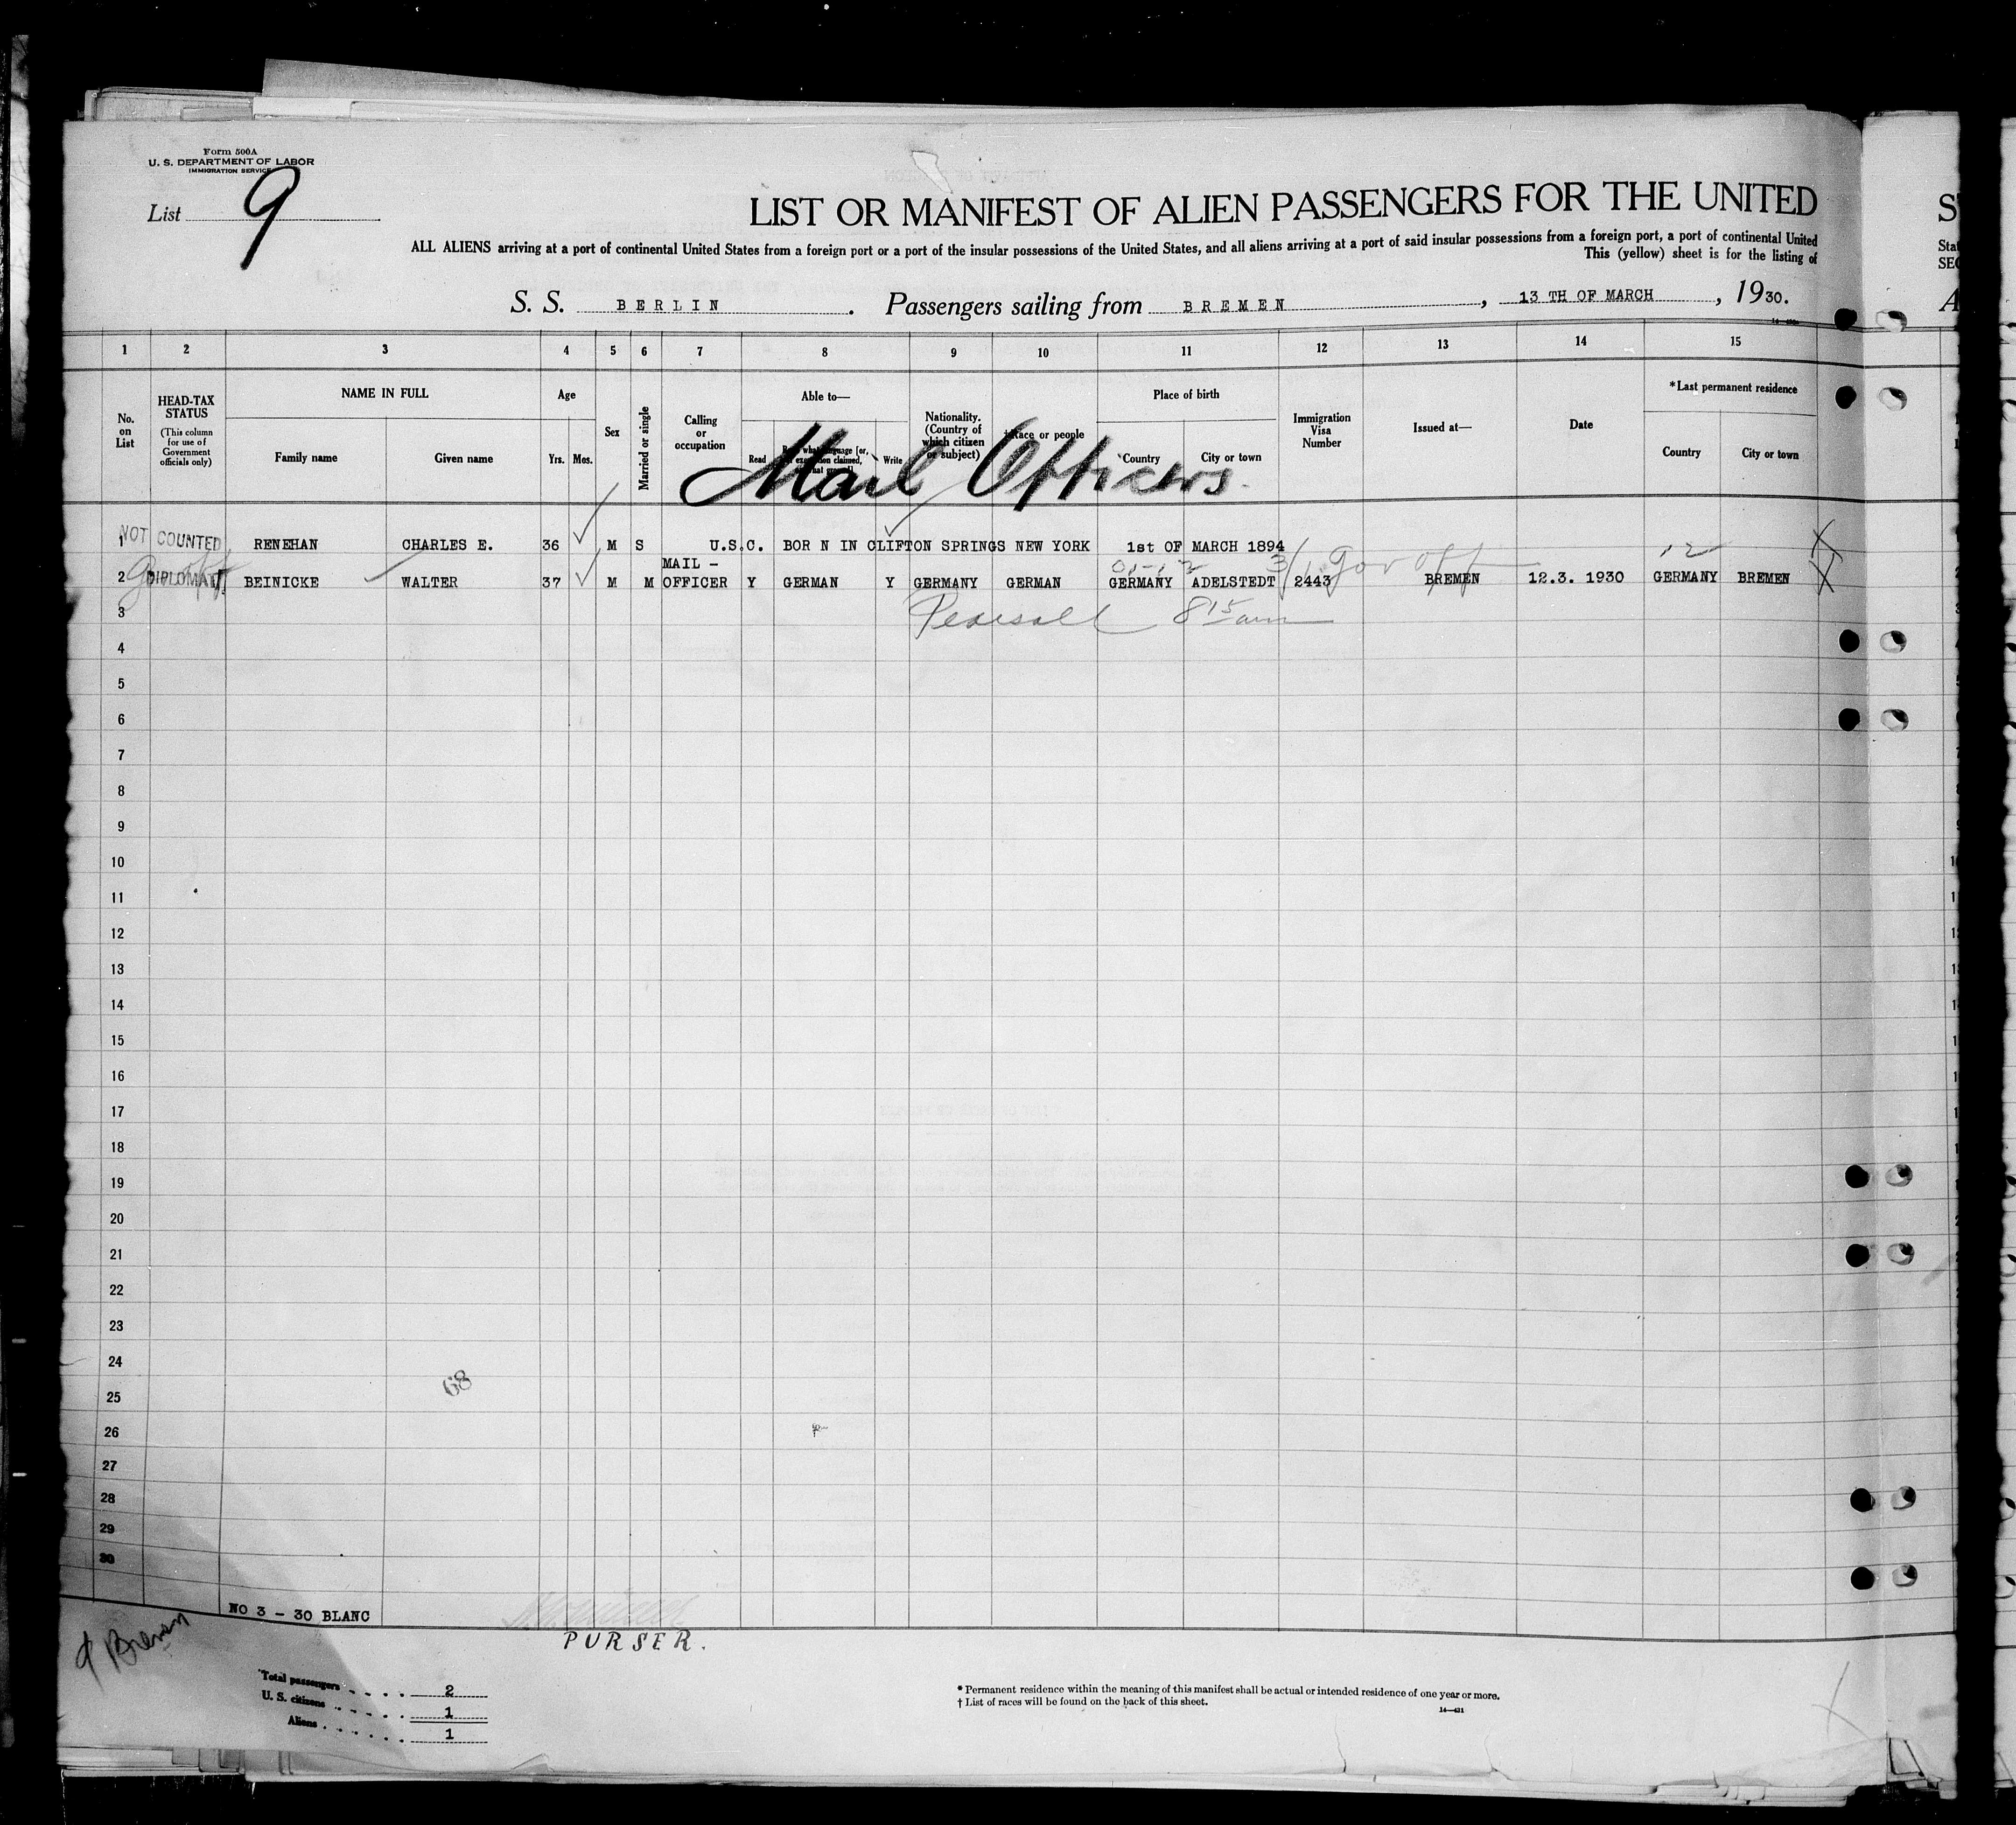 Form 500A
U. S. DEPARTMENT OF LABOR
IMMIGRATION SERVICE
List 9
LIST OR MANIFEST OF ALIEN PASSENGERS FOR THE UNITED
ALL ALIENS arriving at a port of continental United States from a foreign port or a port of the insular possessions of the United States, and all aliens arriving at a port of said insular possessions from a foreign port, a port of continental United
This (yellow) sheet is for the listing of
S. S. BERLIN. Passengers sailing from BREMEN, 13 TH OF MARCH, 1930.
1 2 3 4 5 6 7 8 9 10 11 12 13 14 15
No. on List
HEAD-TAX STATUS
(This column for use of Government officials only)
NAME IN FULL
Family name Given name
Age
Yrs. Mos.
Sex
Married or single
Calling or occupation
Able to—
Read Write
Nationality. (Country of which citizen or subject)
†Race or people
Place of birth
Country City or town
Immigration Visa Number
Issued at—
Date
*Last permanent residence
Country City or town
Mail Officers
NOT COUNTED
1 RENEHAN CHARLES E. 36 M S U.S.C. BOR N IN CLIFTON SPRINGS NEW YORK 1st OF MARCH 1894
12
Gov off
DIPLOMAT
2 BEINICKE WALTER 37 M M MAIL - OFFICER Y GERMAN Y GERMANY GERMAN GERMANY ADELSTEDT 2443 BREMEN 12.3. 1930 GERMANY BREMEN
3 Pearsall 8 15 am
4
5
6
7
8
9
10
11
12
13
14
15
16
17
18
19
20
21
22
23
24
25
26
27
28
29
30
68
NO 3 - 30 BLANC
PURSER.
Bremen
Total passengers 2
U. S. citizens 1
Aliens 1
* Permanent residence within the meaning of this manifest shall be actual or intended residence of one year or more.
† List of races will be found on the back of this sheet.
14—431